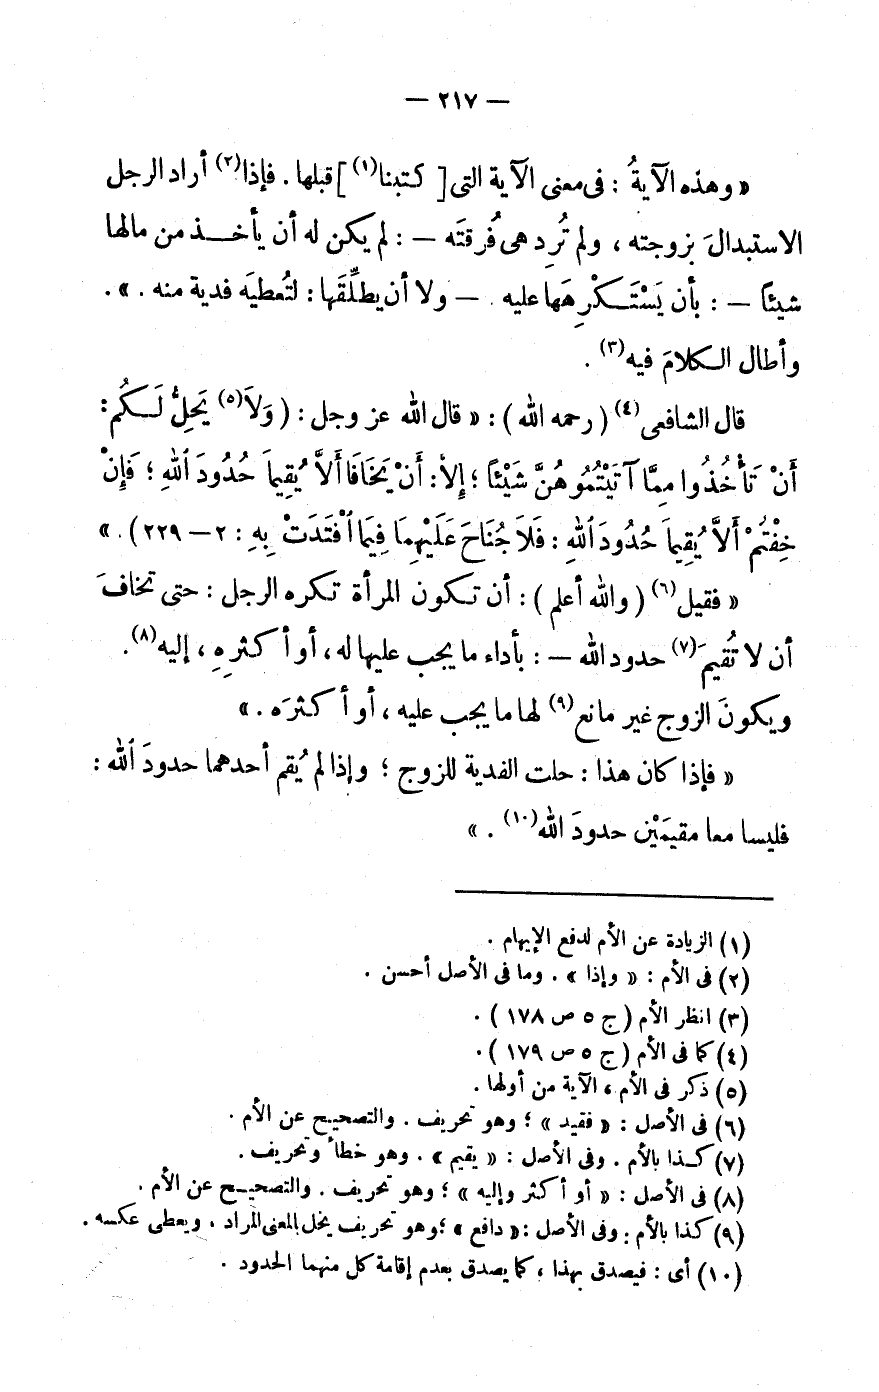 — ٢١٧ —
« وهذه الآيةُ : فى معنى الآية التى [ كتبنا(١) ] قبلها . فإذا(٢) أراد الرجل
الاستبدالَ بزوجته ، ولم تُرِد هى فُرقتَه — : لم يكن له أن يأخـــذ من مالها
شيئاً — : بأن يَسْتَـكْرِهَها عليه . — ولا أن يطلِّقَها : لتُعطيَه فدية منه . » .
وأطال الـكلامَ فيه(٣) .
قال الشافعى(٤) ( رحمه الله ) : « قال الله عز وجل : ( وَلاَ(٥) يَحِلُّ لَـكُم :
أَنْ تَأْخُذُوا مِمَّا آتَيْتُمُوهُنَّ شَيْئًا ؛ إِلاَّ : أَنْ يَخَافَا أَلاَّ يُقِيماَ حُدُودَ ٱللهِ ؛ فَإِنْ
خِفْتُمْ أَلاَّ يُقِيماَ حُدُودَ ٱللهِ : فَلاَ جُنَاحَ عَلَيْهِمَا فِيمَا ٱفْتَدَتْ بِهِ : ٢ — ٢٢٩ ) . »
« فقيل(٦) ( والله أعلم ) : أن تـكون المرأة تـكره الرجل : حتى تخافَ
أن لا تُقيمَ(٧) حدود الله — : بأداء ما يجب عليها له ، أو أكثرِهِ ، إليه(٨) .
ويكونَ الزوج غير مانع(٩) لها ما يجب عليه ، أو أكثرَه . »
« فإذا كان هذا : حلت الفدية للزوج ؛ وإذا لم يُقم أحدهما حدودَ ٱلله :
فليسا معا مقيمَيْن حدودَ الله(١٠) . »
(١) الزيادة عن الأم لدفع الإيهام .
(٢) فى الأم : « وإذا » . وما فى الأصل أحسن .
(٣) انظر الأم (ج ٥ ص ١٧٨ ) .
(٤) كما فى الأم (ج ٥ ص ١٧٩ ) .
(٥) ذكر فى الأم ، الآية من أولها .
(٦) فى الأصل : « فقيد » ؛ وهو تحريف . والتصحيح عن الأم .
(٧) كـذا بالأم . وفى الأصل : « يقيم » . وهو خطأ وتحريف .
(٨) فى الأصل : « أو أكثر وإليه » ؛ وهو تحريف . والتصحيـح عن الأم .
(٩) كذا بالأم . وفى الأصل : « دافع » ؛ وهو تحريف يخل بالمعنى المراد ، ويعطى عكسه .
(١٠) أى : فيصدق بهذا ، كما يصدق بعدم إقامة كل منهما الحدود .